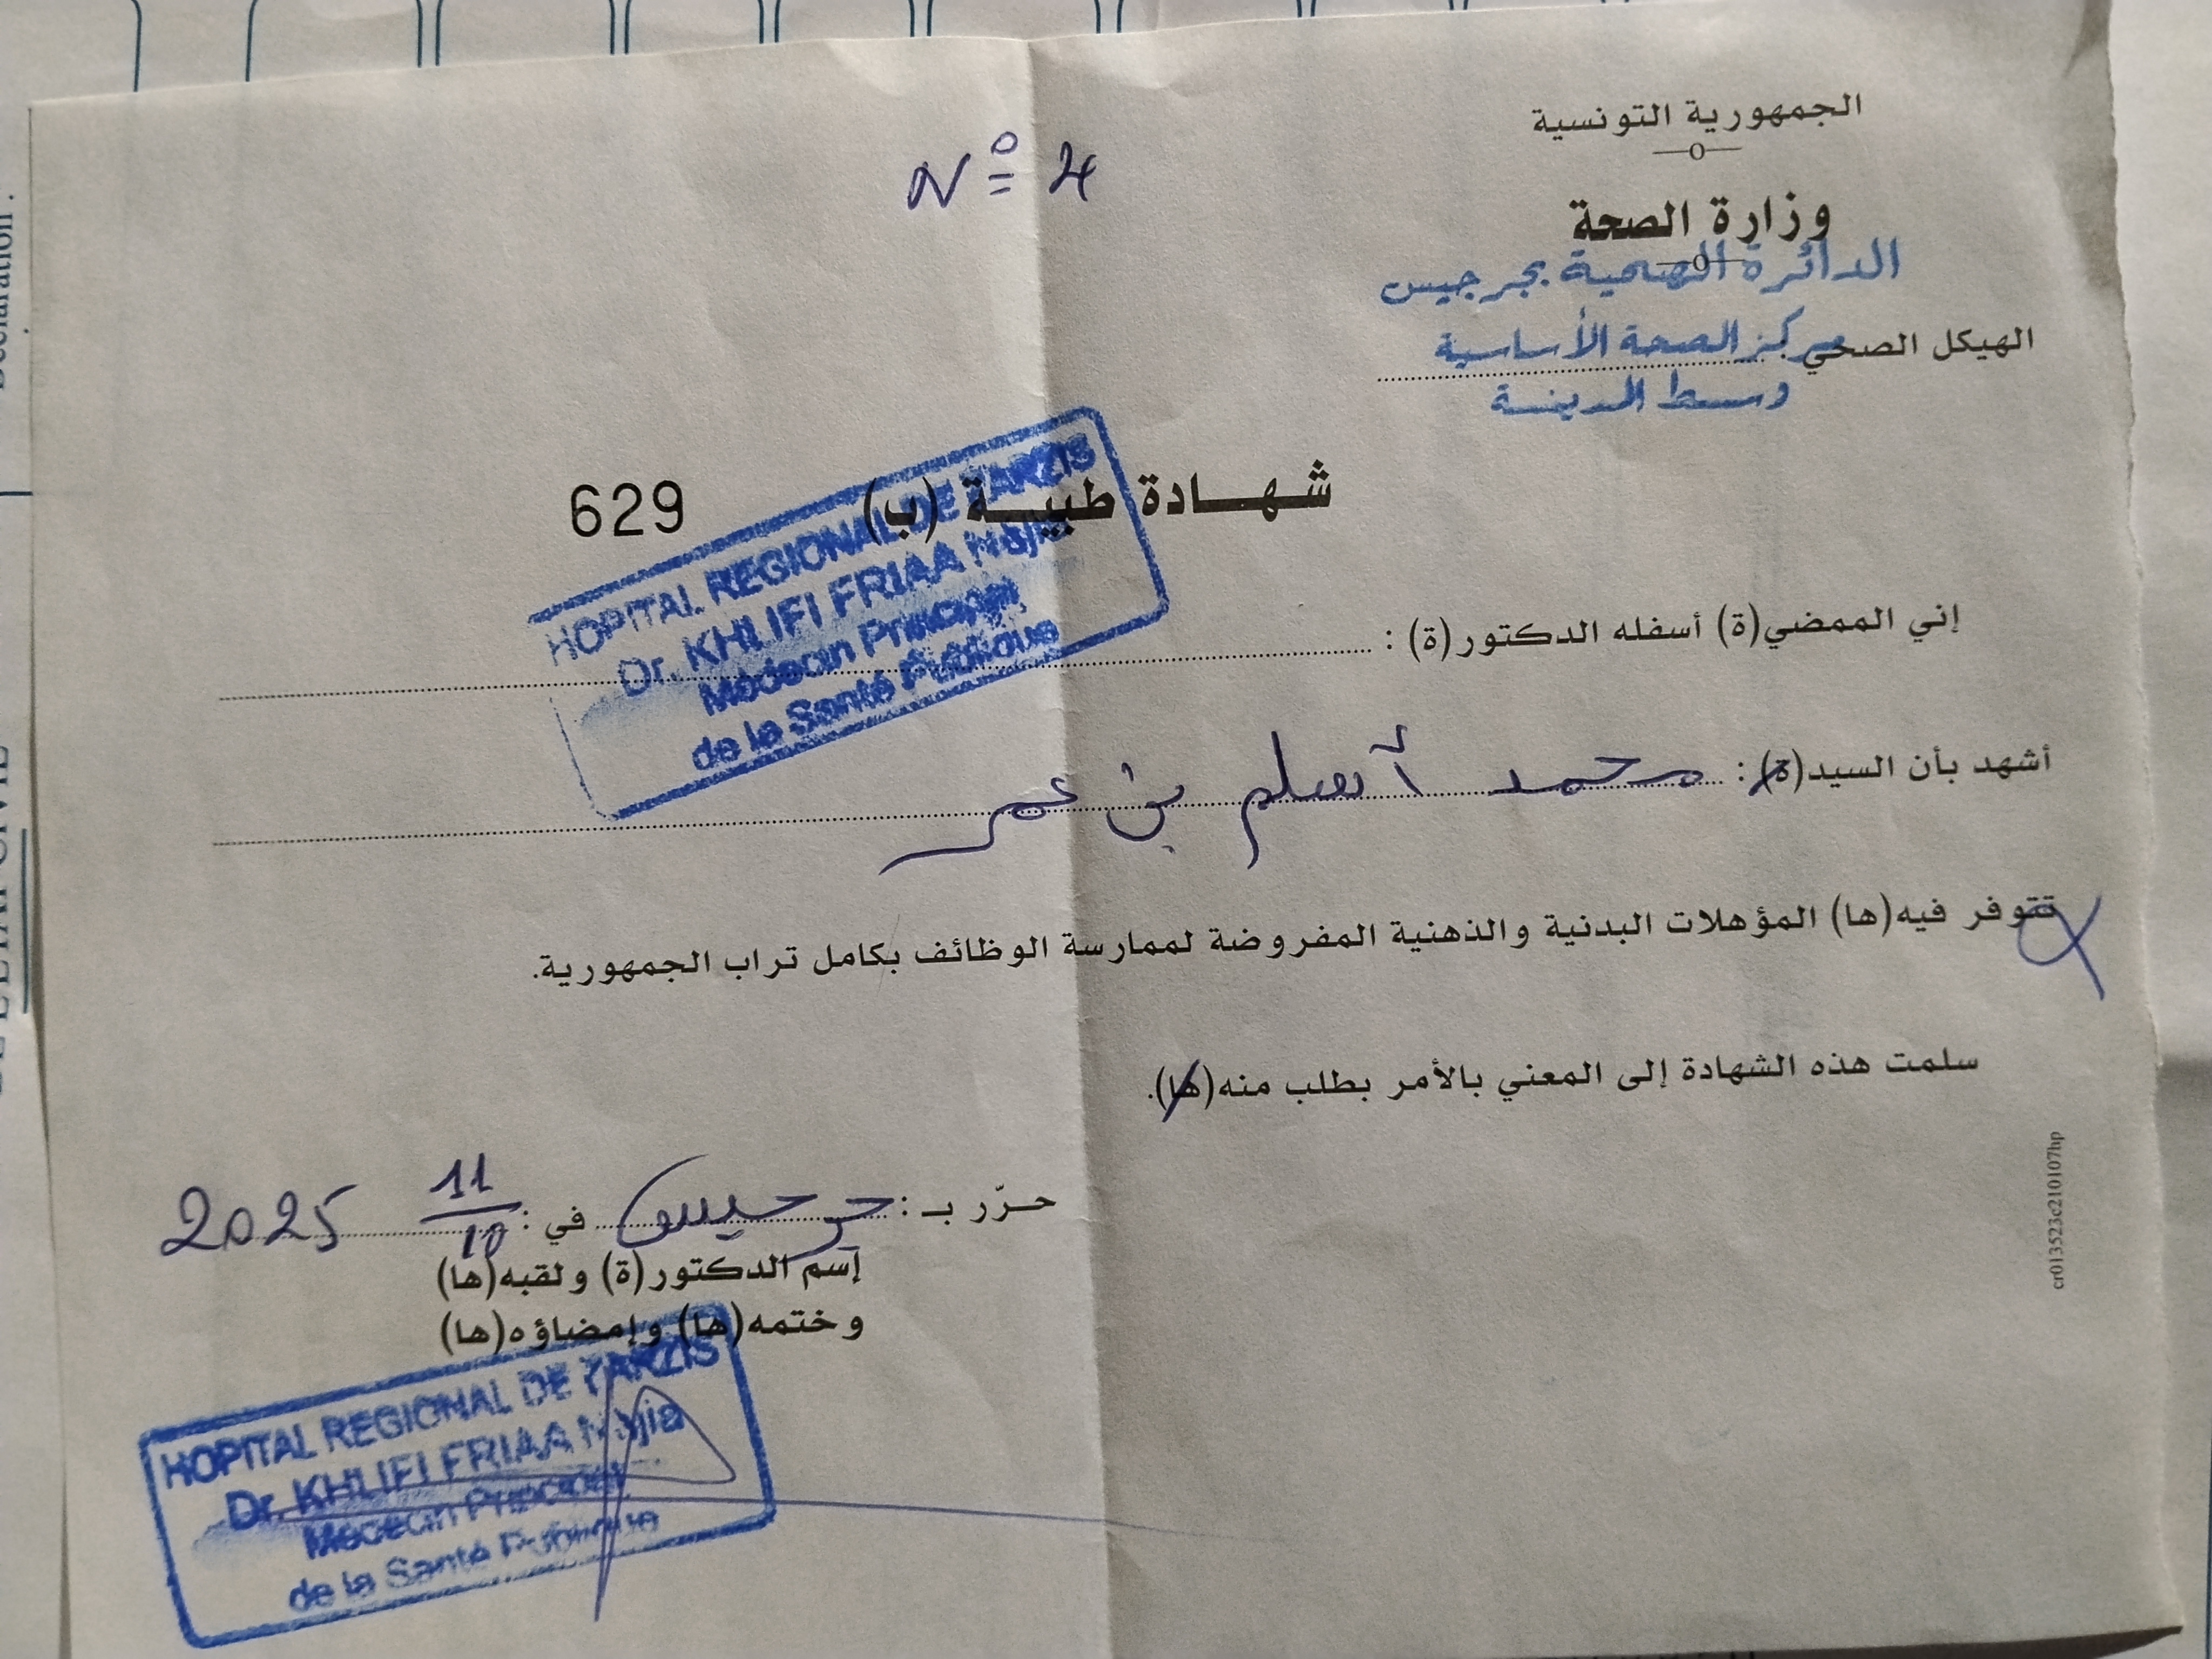 الجمهورية التونسية
N° 4
وزارة الصحة
الدائرة الصحية بجرجيس
الهيكل الصحي : مركز الصحة الأساسية
وسط المدينة
شهـادة طبيـة (ب) 629
HOPITAL REGIONAL DE ZARZIS
Dr. KHLIFI FRIAA Najia
Médecin Principal
de la Santé Publique
إني الممضي(ة) أسفله الدكتور(ة) :
أشهد بأن السيد(ة) : محمد أسلم بن عمر
تتوفر فيه(ها) المؤهلات البدنية والذهنية المفروضة لممارسة الوظائف بكامل تراب الجمهورية.
سلمت هذه الشهادة إلى المعني بالأمر بطلب منه(ها).
حـرّر بـ : جرجيس في : 11/10 2025
إسم الدكتور(ة) ولقبه(ها)
وختمه(ها) وإمضاؤه(ها)
HOPITAL REGIONAL DE ZARZIS
Dr. KHLIFI FRIAA Najia
Médecin Principal
de la Santé Publique
cr013523c210107hp